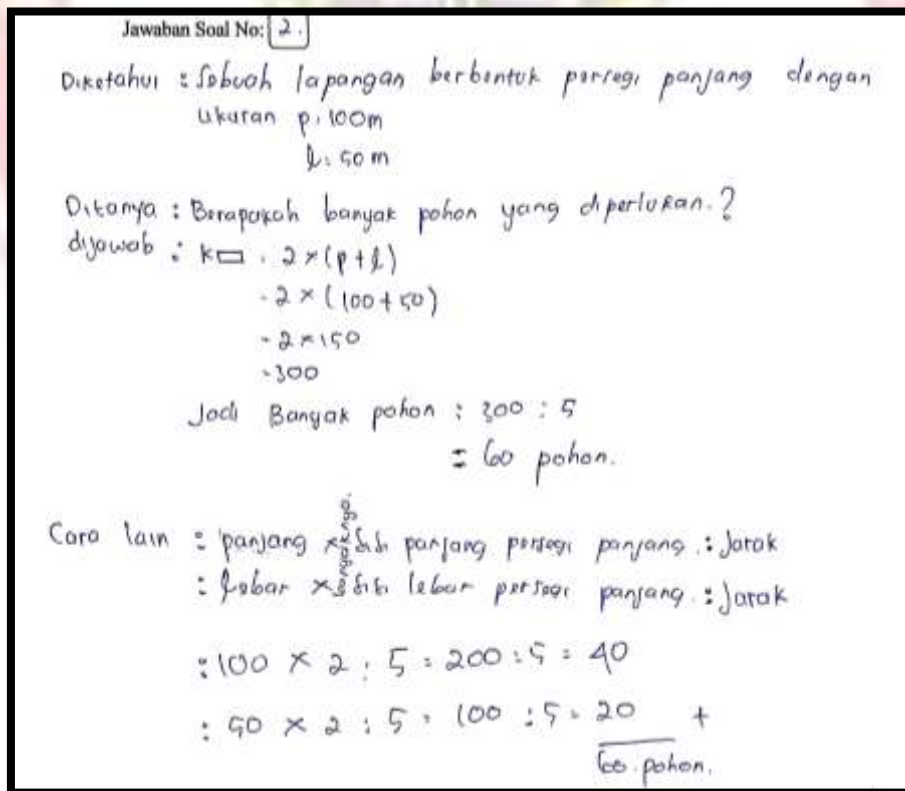 Jawaban Soal No: 2.
Diketahui : Sebuah lapangan berbentuk persegi panjang dengan
ukuran p : 100m
l : 50 m
Ditanya : Berapakah banyak pohon yang diperlukan.?
dijawab : k▭ = 2 × (p + l)
= 2 × (100 + 50)
= 2 × 150
= 300
Jadi Banyak pohon : 300 : 5
= 60 pohon.
Cara lain : panjang × banyaknya sisi panjang persegi panjang : Jarak
: Lebar × banyaknya sisi lebar persegi panjang : Jarak
: 100 × 2 : 5 = 200 : 5 = 40
: 50 × 2 : 5 = 100 : 5 = 20 +
60 pohon.